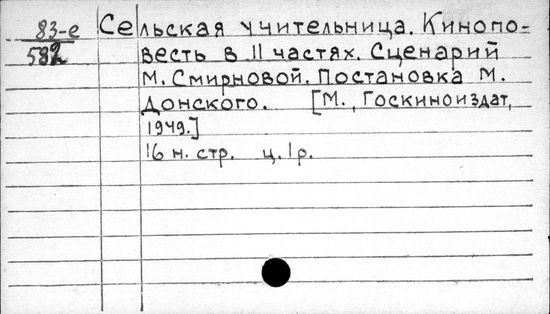 83-е Сельская учительница. Кинопо-
582 весть в II частях. Сценарий
М. Смирновой. Постановка М.
Донского. [М., Госкиноиздат,
1949.]
16 н. стр. ц. 1 р.